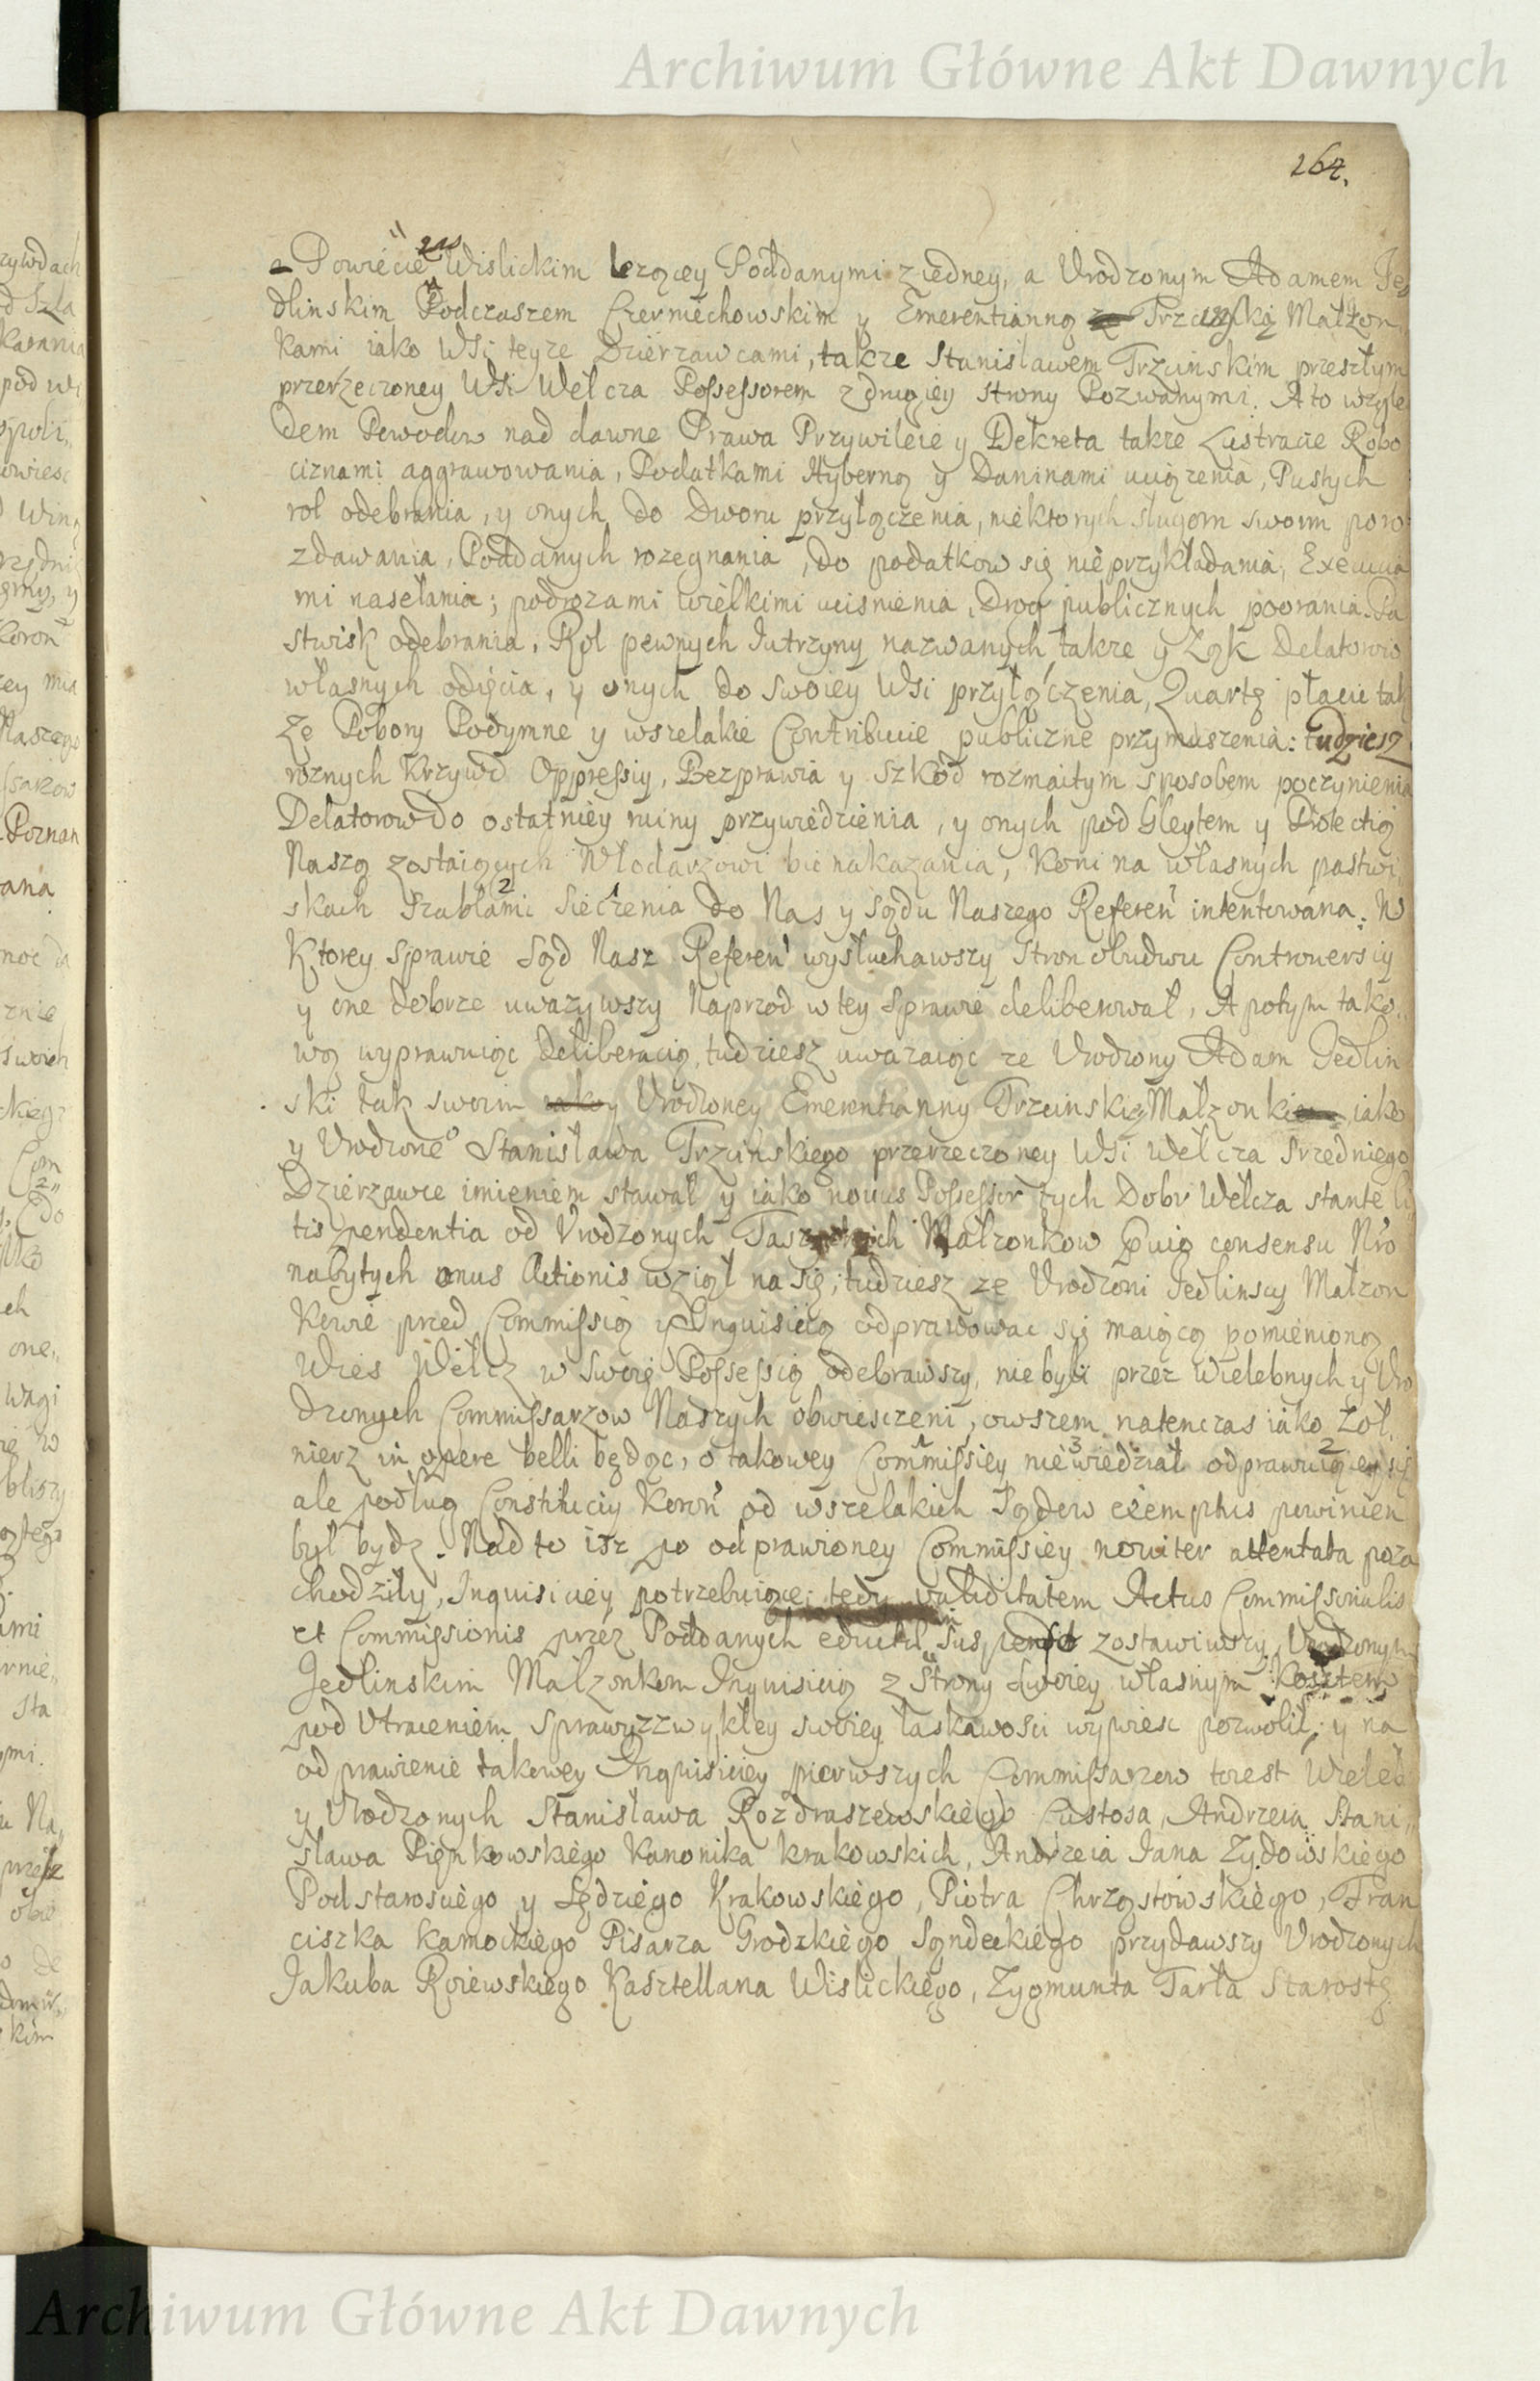 Archiwum Główne Akt Dawnych
264.
Powiecie zas Wislickim lezącey Poddanymi z iedney, a Urodzonym Adamem Je
dlinskim Podczaszem Czerniechowskim y Emerentianną Trzcinską Małzon
kami iako Wsi teyze Dzierzawcami, takze Stanisławem Trzcinskim przeszłym
przerzeczoney Wsi Wełcza Possessorem z drugiey strony Pozwanymi. A to wzglę
dem Powodow nad dawne Prawa Przywileie y Dekreta takze Lustracie Robo
ciznami aggrawowania, Podatkami Hyberną y Daninami uciązenia, Pustych
rol odebrania, y onych do Dworu przyłączenia, niektorych sługom swoim poro
zdawania, Poddanych rozegnania, do podatkow się nieprzykładania, Execucia
mi nasełania; podrozami wielkimi ucisnienia, Drog publicznych poorania. Pa
stwisk odebrania, Rol pewnych Jutrzyny nazwanych takze y Ląk Delatorow
własnych odięcia, y onych do swoiey Wsi przyłączenia, Quartę płacic tak
ze Pobory Podymne y wszelakie Contribucie publiczne przymuszenia: tudziesz
roznych Krzywd Oppressiy, Bezprawia y Szkod rozmaitym sposobem poczynienia
Delatorow do ostatniey ruiny przywiedzienia, y onych pod Gleytem y Protectią
Naszą zostaiących Włodarzowi bic nakazania, Koni na własnych pastwi
skach Szablami 2 Sieczenia 1 do Nas y Sądu Naszego Referen intentowana. W
Ktorey Sprawie Sąd Nasz Referen wysłuchawszy stron obudwu Controwersiy
y one dobrze uwazywszy Naprzod w tey Sprawie deliberował, A potym tako
wą wyprawuiąc deliberacią, tudziesz uwazaiąc ze Urodzony Adam Jedlin
ski tak swoim iako y Urodzoney Emerentianny Trzcinskiey Małzonki iako
y Urodzonego Stanisława Trzcinskiego przerzeczoney Wsi Wełcza Srzedniego
Dzierzawce imieniem stawał y iako nouus Possessor tych Dobr Wełcza stante li
tis pendentia od Urodzonych Małzonkow consensu Nro
nabytych onus Actionis wziął na się, tudziesz ze Urodzoni Jedlinscy Małzon
kowie przed Commissią y Inquisicią odprawowac się maiącą pomienioną
Wies Wełcz w Swoię Possessią odebrawszy, nie byli przez Wielebnych y Uro
dzonych Commissarzow Naszych obwiesczeni, owszem natenczas iako Zoł
nierz in opere belli będąc, o takowey Commissiey 1 nie wiedział 3 odprawuiącey się 2
ale podług Constituciy Koron od wszelakich Sądow exemptus powinien
był bydz. Nad to isz po odprawioney Commissiey nowiter attentata poza
chodziły, Inquisiciey potrzebuiące; tedy validitatem Actus Commissionalis
et Commissionis przez Poddanych in suspenso zostawiwszy, Urodzonym
Jedlinskim Małzonkom Inquisicią z Strony Swoiey własnym kosztem
pod Utraceniem Sprawy z zwykłey swoiey łaskawosci wywiesc pozwolił; y na
odprawienie takowey Inquisiciey pierwszych Commissarzow to iest Wieleb
y Urodzonych Stanisława Rozdraszewskiego Custosa, Andrzeia Stani
sława Pięnkowskiego Kanonika Krakowskich, Andrzeia Jana Zydowskiego
Podstarosciego y Sędziego Krakowskiego, Piotra Chrząstowskiego, Fran
ciszka Kamockiego Pisarza Grodzkiego Sąndeckiego przydawszy Urodzonych
Jakuba Roiewskiego Kasztellana Wislickiego, Zygmunta Tarła Starostę
Archiwum Główne Akt Dawnych